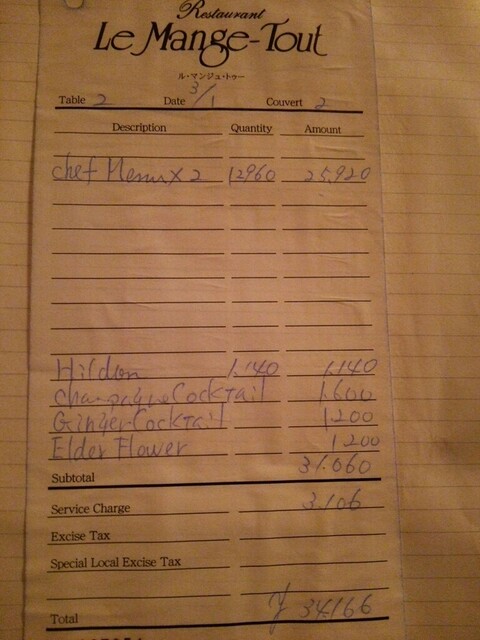 Restaurant
Le Mange-Tout
ル・マンジュ・トゥー
Table 2 Date 3/1 Couvert 2
Description Quantity Amount
Chef Menu X 2 12960 25,920
Hildon 1,140 1,140
Champagne Cocktail 1,600
Ginger Cocktail 1200
Elder Flower 1200
Subtotal 31.060
Service Charge 3.106
Excise Tax
Special Local Excise Tax
Total ¥ 34.166